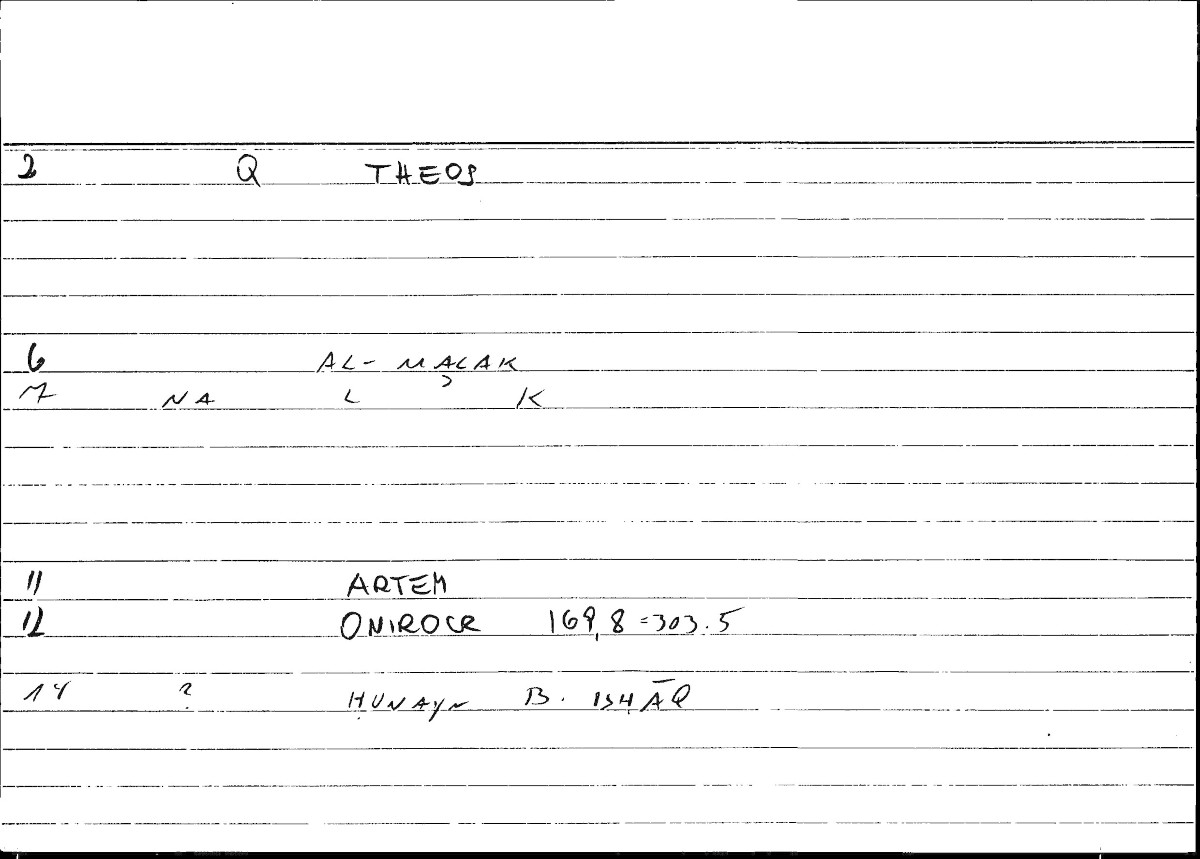 2 Q THEOS
6 AL-MALAK
7 NA L K
11 ARTEM
12 ONIROCR 169,8=303.5
14 ? ḤUNAYN B. ISḤĀQ